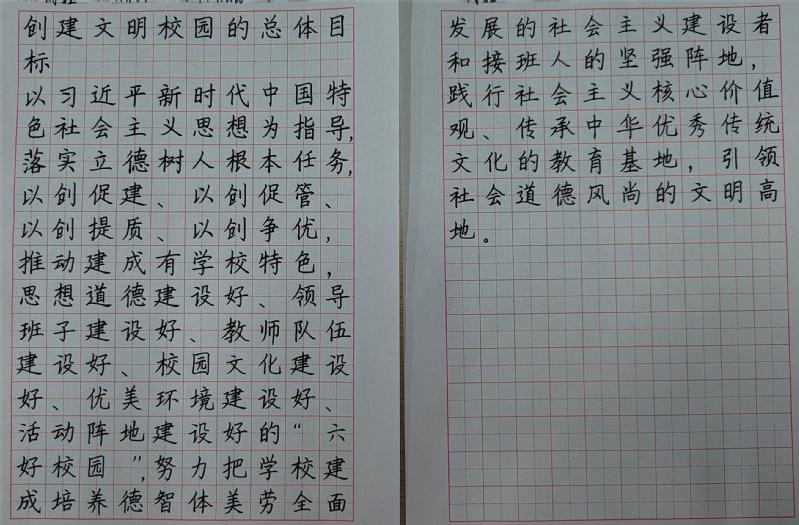 创建文明校园的总体目
标
以习近平新时代中国特
色社会主义思想为指导,
落实立德树人根本任务,
以创促建、以创促管、
以创提质、以创争优,
推动建成有学校特色,
思想道德建设好、领导
班子建设好、教师队伍
建设好、校园文化建设
好、优美环境建设好、
活动阵地建设好的“六
好校园”,努力把学校建
成培养德智体美劳全面
发展的社会主义建设者
和接班人的坚强阵地,
践行社会主义核心价值
观、传承中华优秀传统
文化的教育基地,引领
社会道德风尚的文明高
地。